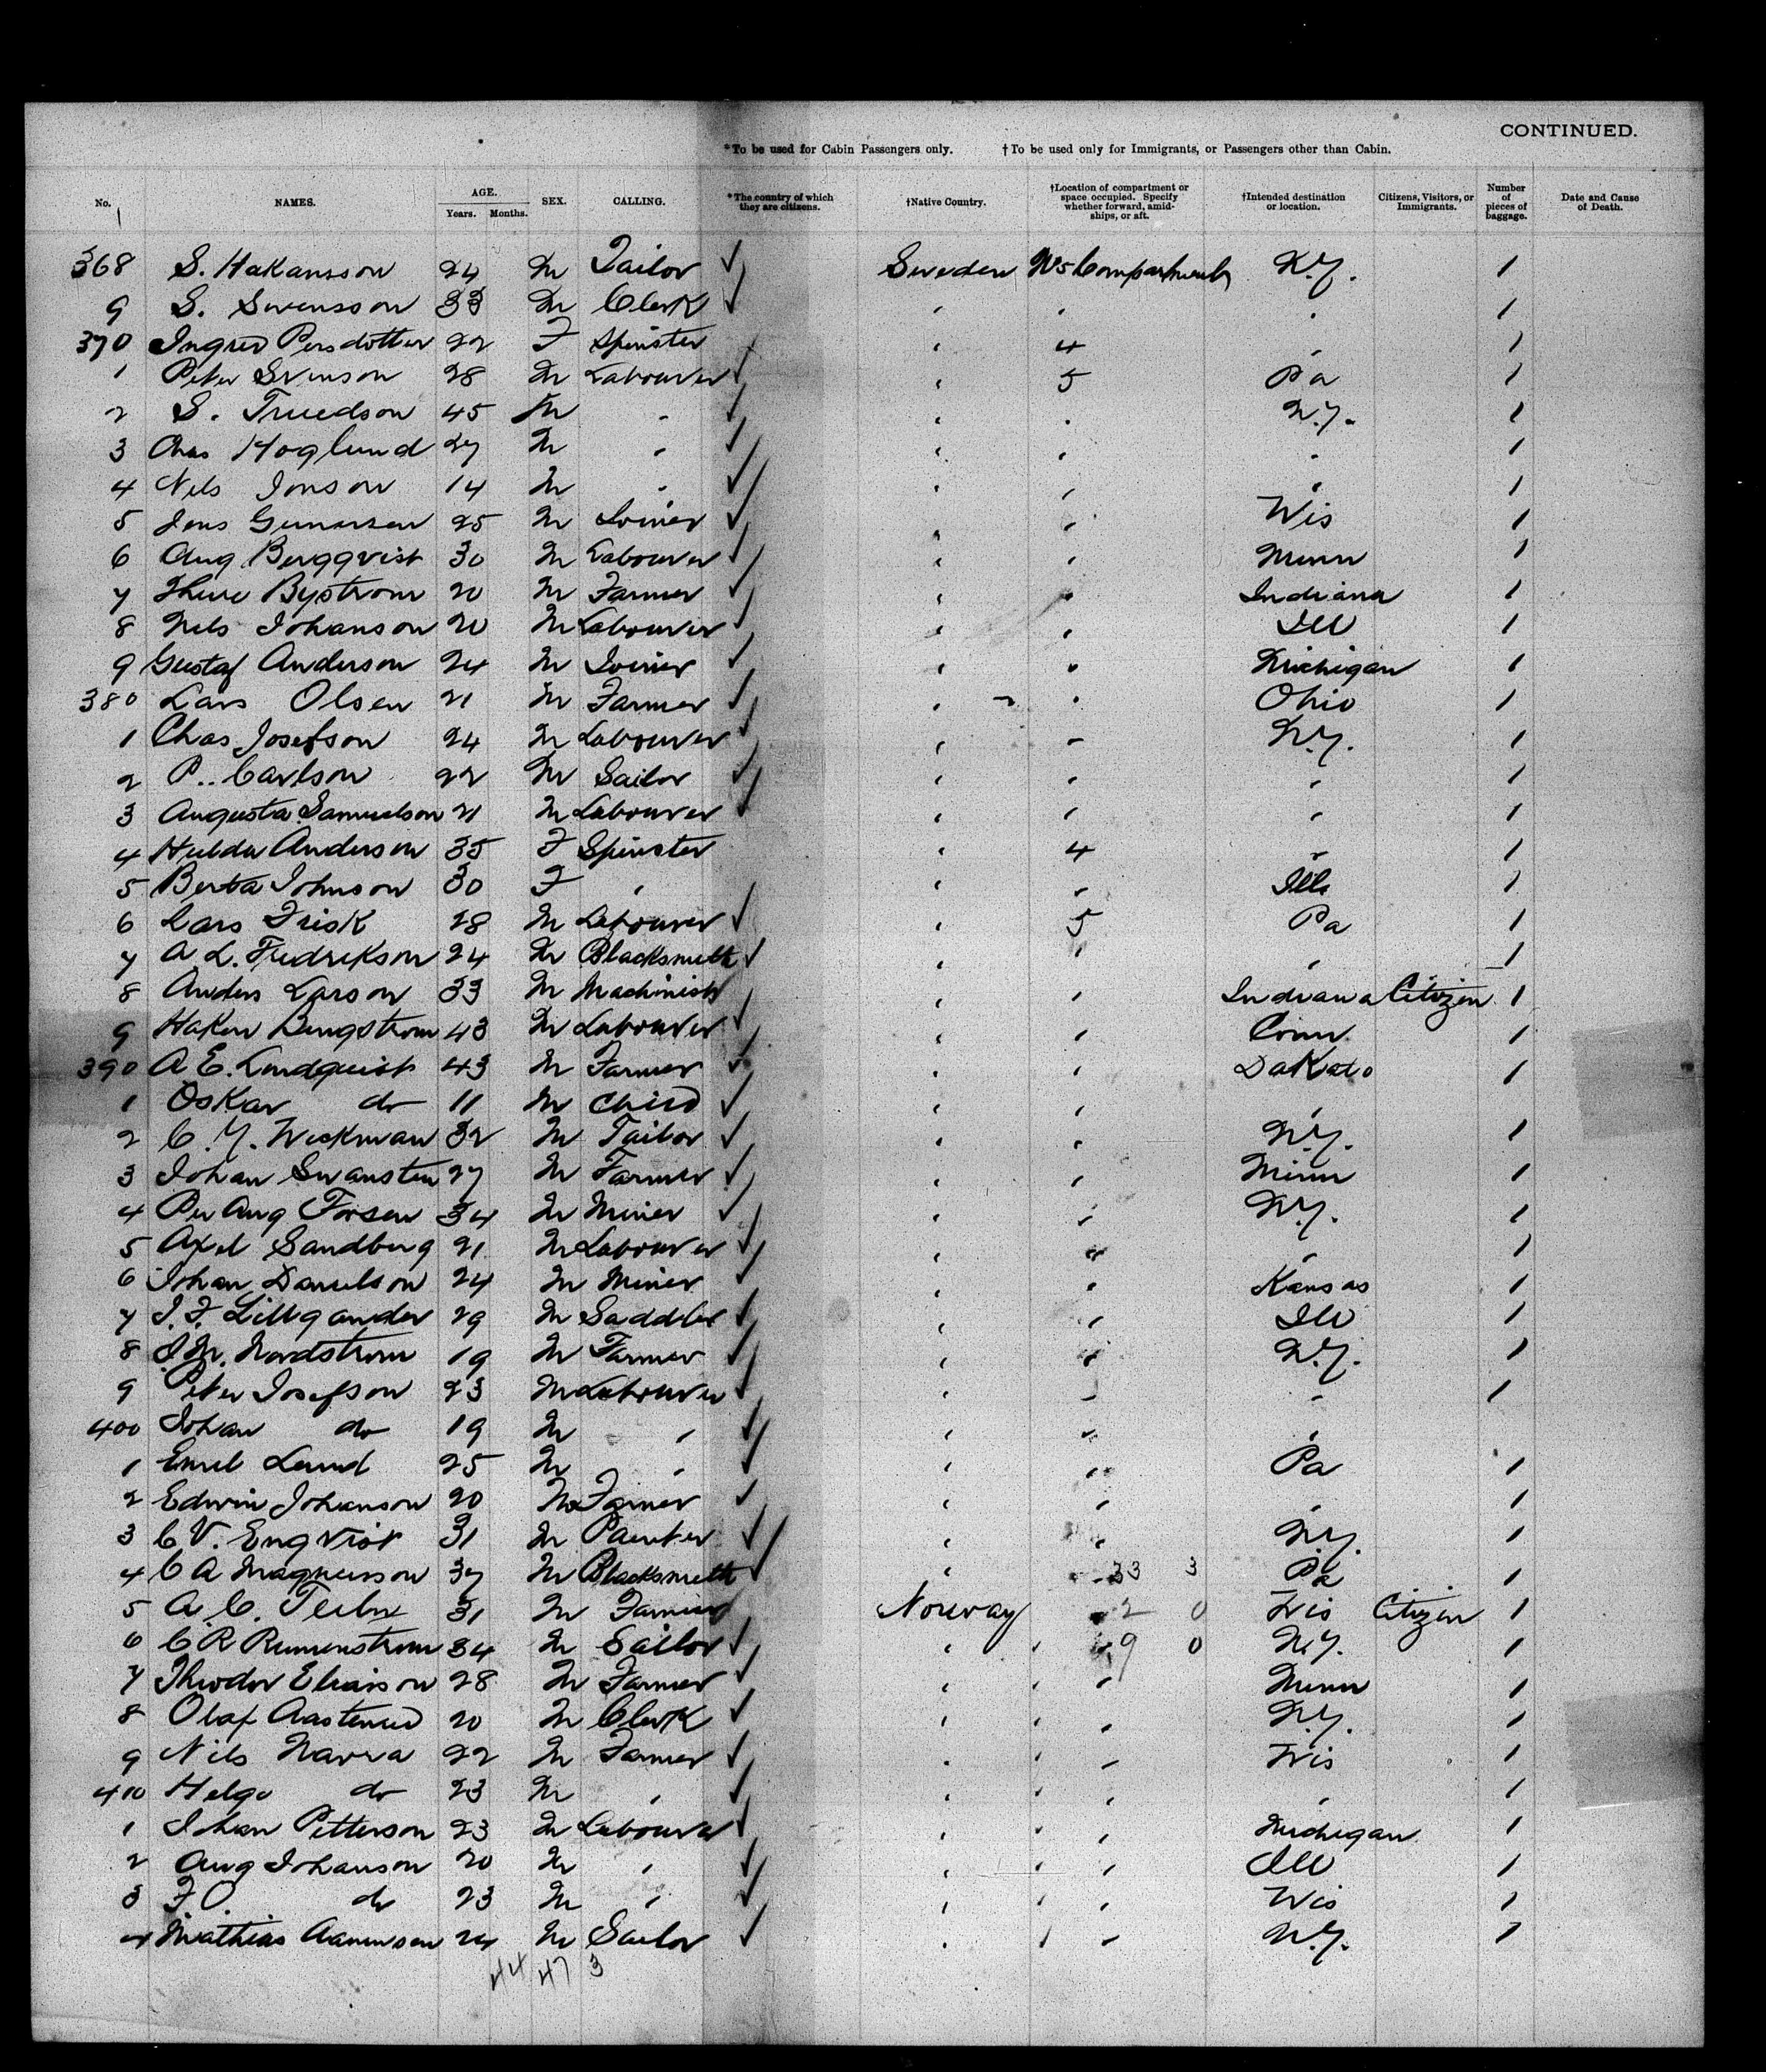 CONTINUED.
*To be used for Cabin Passengers only. †To be used only for Immigrants, or Passengers other than Cabin.
No. NAMES. AGE. Years. Months. SEX. CALLING. *The country of which they are citizens. †Native Country. †Location of compartment or space occupied. Specify whether forward, amidships, or aft. †Intended destination or location. Citizens, Visitors, or Immigrants. Number of pieces of baggage. Date and Cause of Death.
368 S. Hakansson 24 M Tailor ✓ Sweden No 5 Compartment N.Y. 1
9 S. Swensson 33 M Clerk ✓ " " " 1
370 Ingrid Persdotter 22 F Spinster " 4 " 1
1 Peter Svenson 28 M Labourer ✓ " 5 Pa 1
2 S. Truedson 45 M " ✓ " " N.Y. 1
3 Chas Hoglund 27 M " ✓ " " " 1
4 Nils Jonson 14 M " ✓ " " " 1
5 Jens Gunarsen 25 M Joiner ✓ " " Wis 1
6 Aug Bergqvist 30 M Labourer ✓ " " Minn 1
7 Thure Bystrom 20 M Farmer ✓ " " Indiana 1
8 Nels Johanson 20 M Labourer ✓ " " Ill 1
9 Gustaf Anderson 24 M Joiner ✓ " " Michigan 1
380 Lars Olsen 21 M Farmer ✓ " " Ohio 1
1 Chas Josefson 24 M Labourer ✓ " " N.Y. 1
2 P. Carlson 22 M Sailor ✓ " " " 1
3 Augusta Samuelson 21 M Labourer ✓ " " " 1
4 Hulda Anderson 35 F Spinster " 4 " 1
5 Berta Johnson 30 F " " " Ills 1
6 Lars Frisk 28 M Labourer ✓ " 5 Pa 1
7 A L. Fredrikson 24 M Blacksmith ✓ " " " 1
8 Anders Larson 33 M Machinist " " Indiana Citizen 1
9 Hakon Bengstrom 43 M Labourer ✓ " " Conn 1
390 A E. Lindquist 43 M Farmer ✓ " " Dakota 1
1 Oskar do 11 M Child ✓ " " "
2 C. Y. Wickman 32 M Tailor ✓ " " N.Y. 1
3 Johan Swansten 27 M Farmer ✓ " " Minn 1
4 Per Aug Forsen 34 M Miner ✓ " " N.Y. 1
5 Axel Sandberg 21 M Labourer ✓ " " " 1
6 Johan Danielson 24 M Miner ✓ " " Kansas 1
7 J. F. Lillgander 29 M Saddler ✓ " " Ill 1
8 J. M. Nordstrom 19 M Farmer ✓ " " N.Y. 1
9 Peter Josefson 23 M Labourer ✓ " " " 1
400 Johan do 19 M " ✓ " " "
1 Emil Lund 25 M " ✓ " " Pa 1
2 Edwin Johanson 20 M Farmer ✓ " " " 1
3 C V. Engvist 31 M Painter ✓ " " N.Y. 1
4 C A Magnusson 37 M Blacksmith ✓ " " 33 3 Pa 1
5 A C. 31 M Farmer Norway " 2 0 Wis Citizen 1
6 C R Rumenstrom 34 M Sailor ✓ " " 9 0 N.Y. 1
7 Theodor Eliason 28 M Farmer ✓ " " " Minn 1
8 Olaf 20 M Clerk ✓ " " " N.Y. 1
9 Nils Narra 22 M Farmer ✓ " " " Wis 1
410 Helge do 23 M " ✓ " " " " 1
1 Johan Petterson 23 M Labourer ✓ " " " Michigan 1
2 Aug Johanson 20 M " ✓ " " " Ill 1
3 F O. do 23 M " ✓ " " " Wis 1
4 Mathias Aanensen 24 M Sailor ✓ " " " N.Y. 1
44 47 3